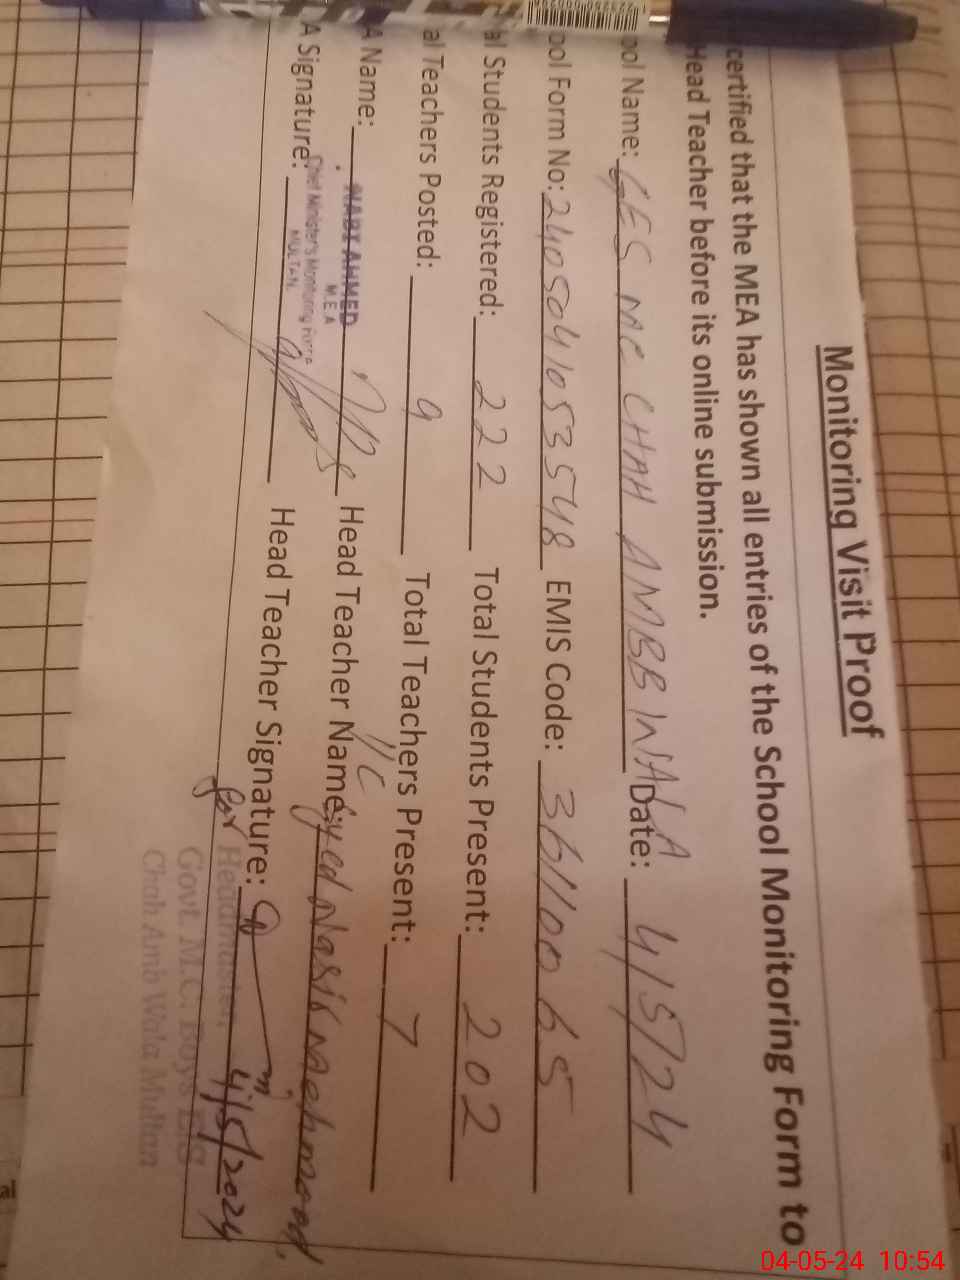 Monitoring Visit Proof
certified that the MEA has shown all entries of the School Monitoring Form to
Head Teacher before its online submission.
ool Name: GES MC CHAH AMBB WALA Date: 4/5/24
ool Form No: 240504105 3548 EMIS Code: 36110065
al Students Registered: 222 Total Students Present: 202
al Teachers Posted: 9 Total Teachers Present: 7
A Name: NABI AHMED Head Teacher Name: Syed Nasir Mehmood
I/C
M.E.A
Chief Minister's Monitoring Force
MULTAN.
A Signature: Head Teacher Signature: 4/5/2024
for Headmaster,
Govt. M.C. Boys E/S
Chah Amb Wala Multan
04-05-24 10:54